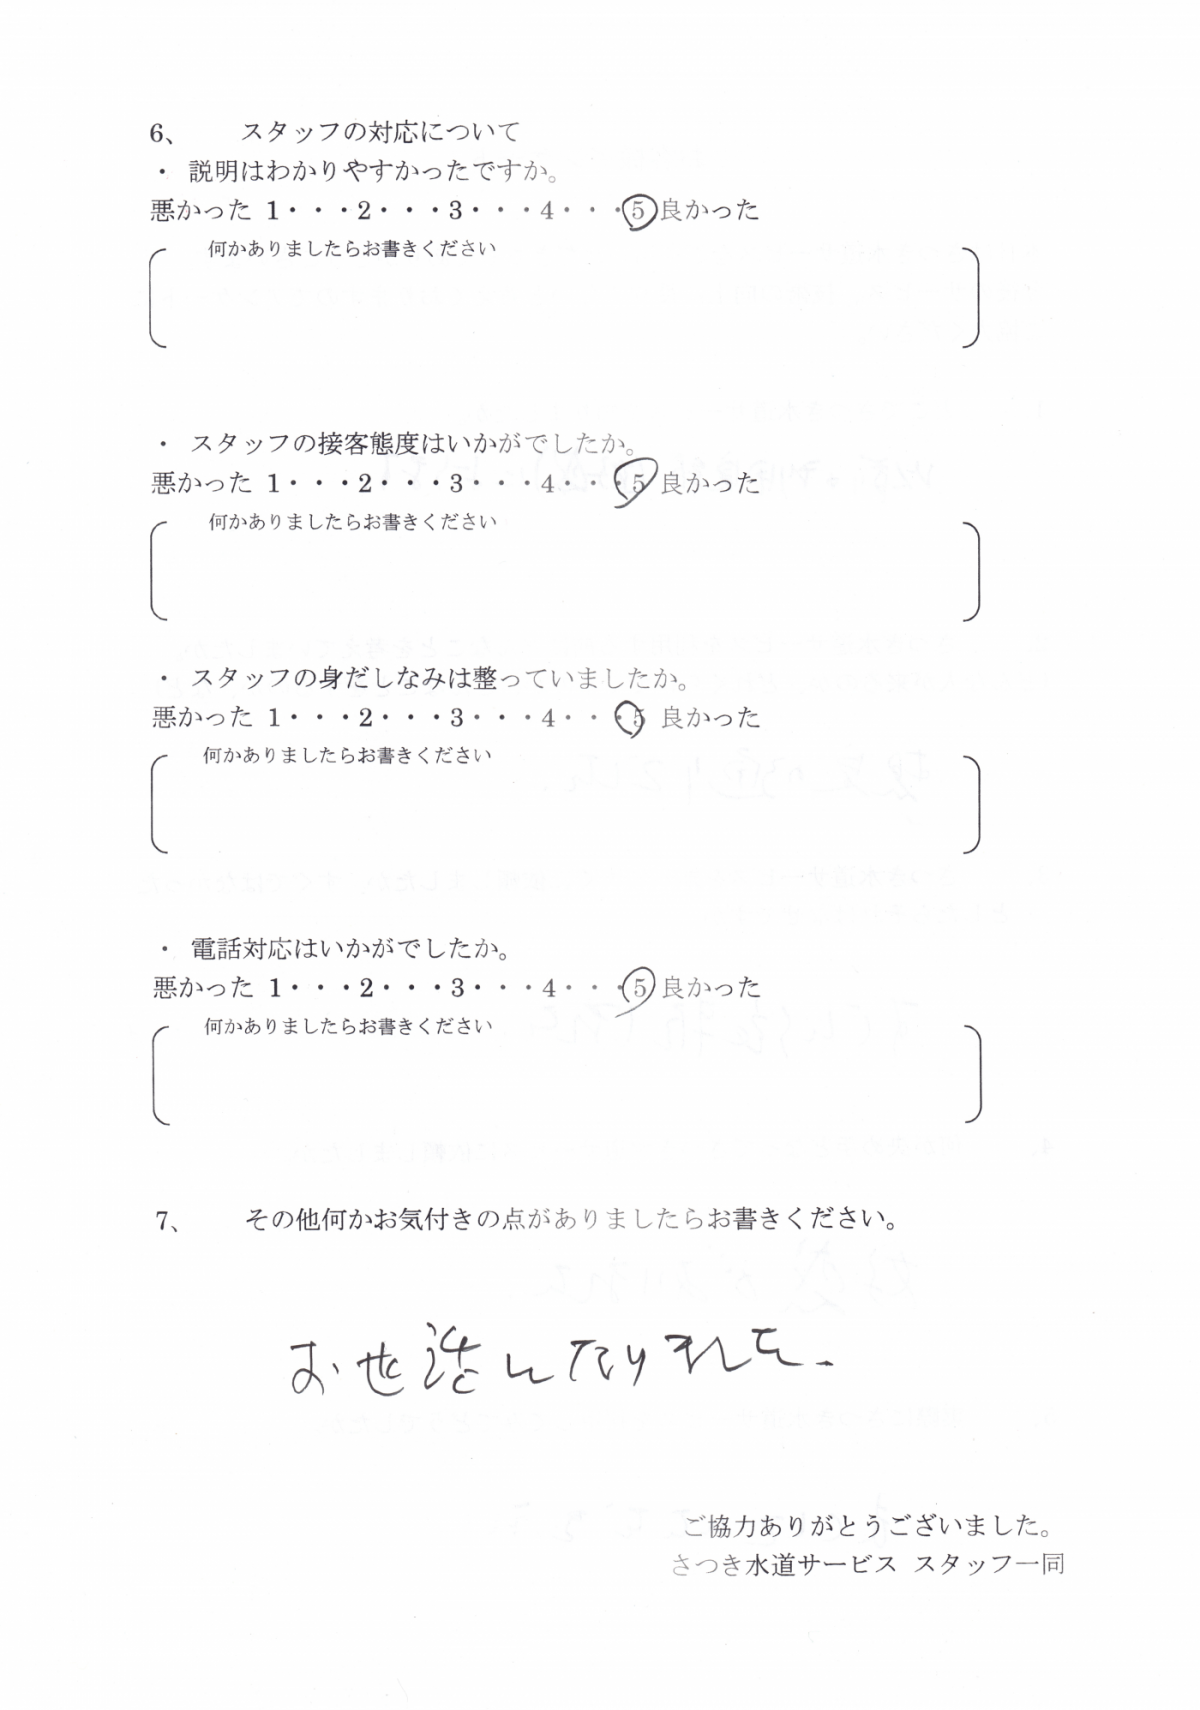 6、 スタッフの対応について
・ 説明はわかりやすかったですか。
悪かった 1・・・2・・・3・・・4・・・5 良かった
何かありましたらお書きください
・ スタッフの接客態度はいかがでしたか。
悪かった 1・・・2・・・3・・・4・・・5 良かった
何かありましたらお書きください
・ スタッフの身だしなみは整っていましたか。
悪かった 1・・・2・・・3・・・4・・・5 良かった
何かありましたらお書きください
・ 電話対応はいかがでしたか。
悪かった 1・・・2・・・3・・・4・・・5 良かった
何かありましたらお書きください
7、 その他何かお気付きの点がありましたらお書きください。
お世話になりました.
ご協力ありがとうございました。
さつき水道サービス スタッフ一同